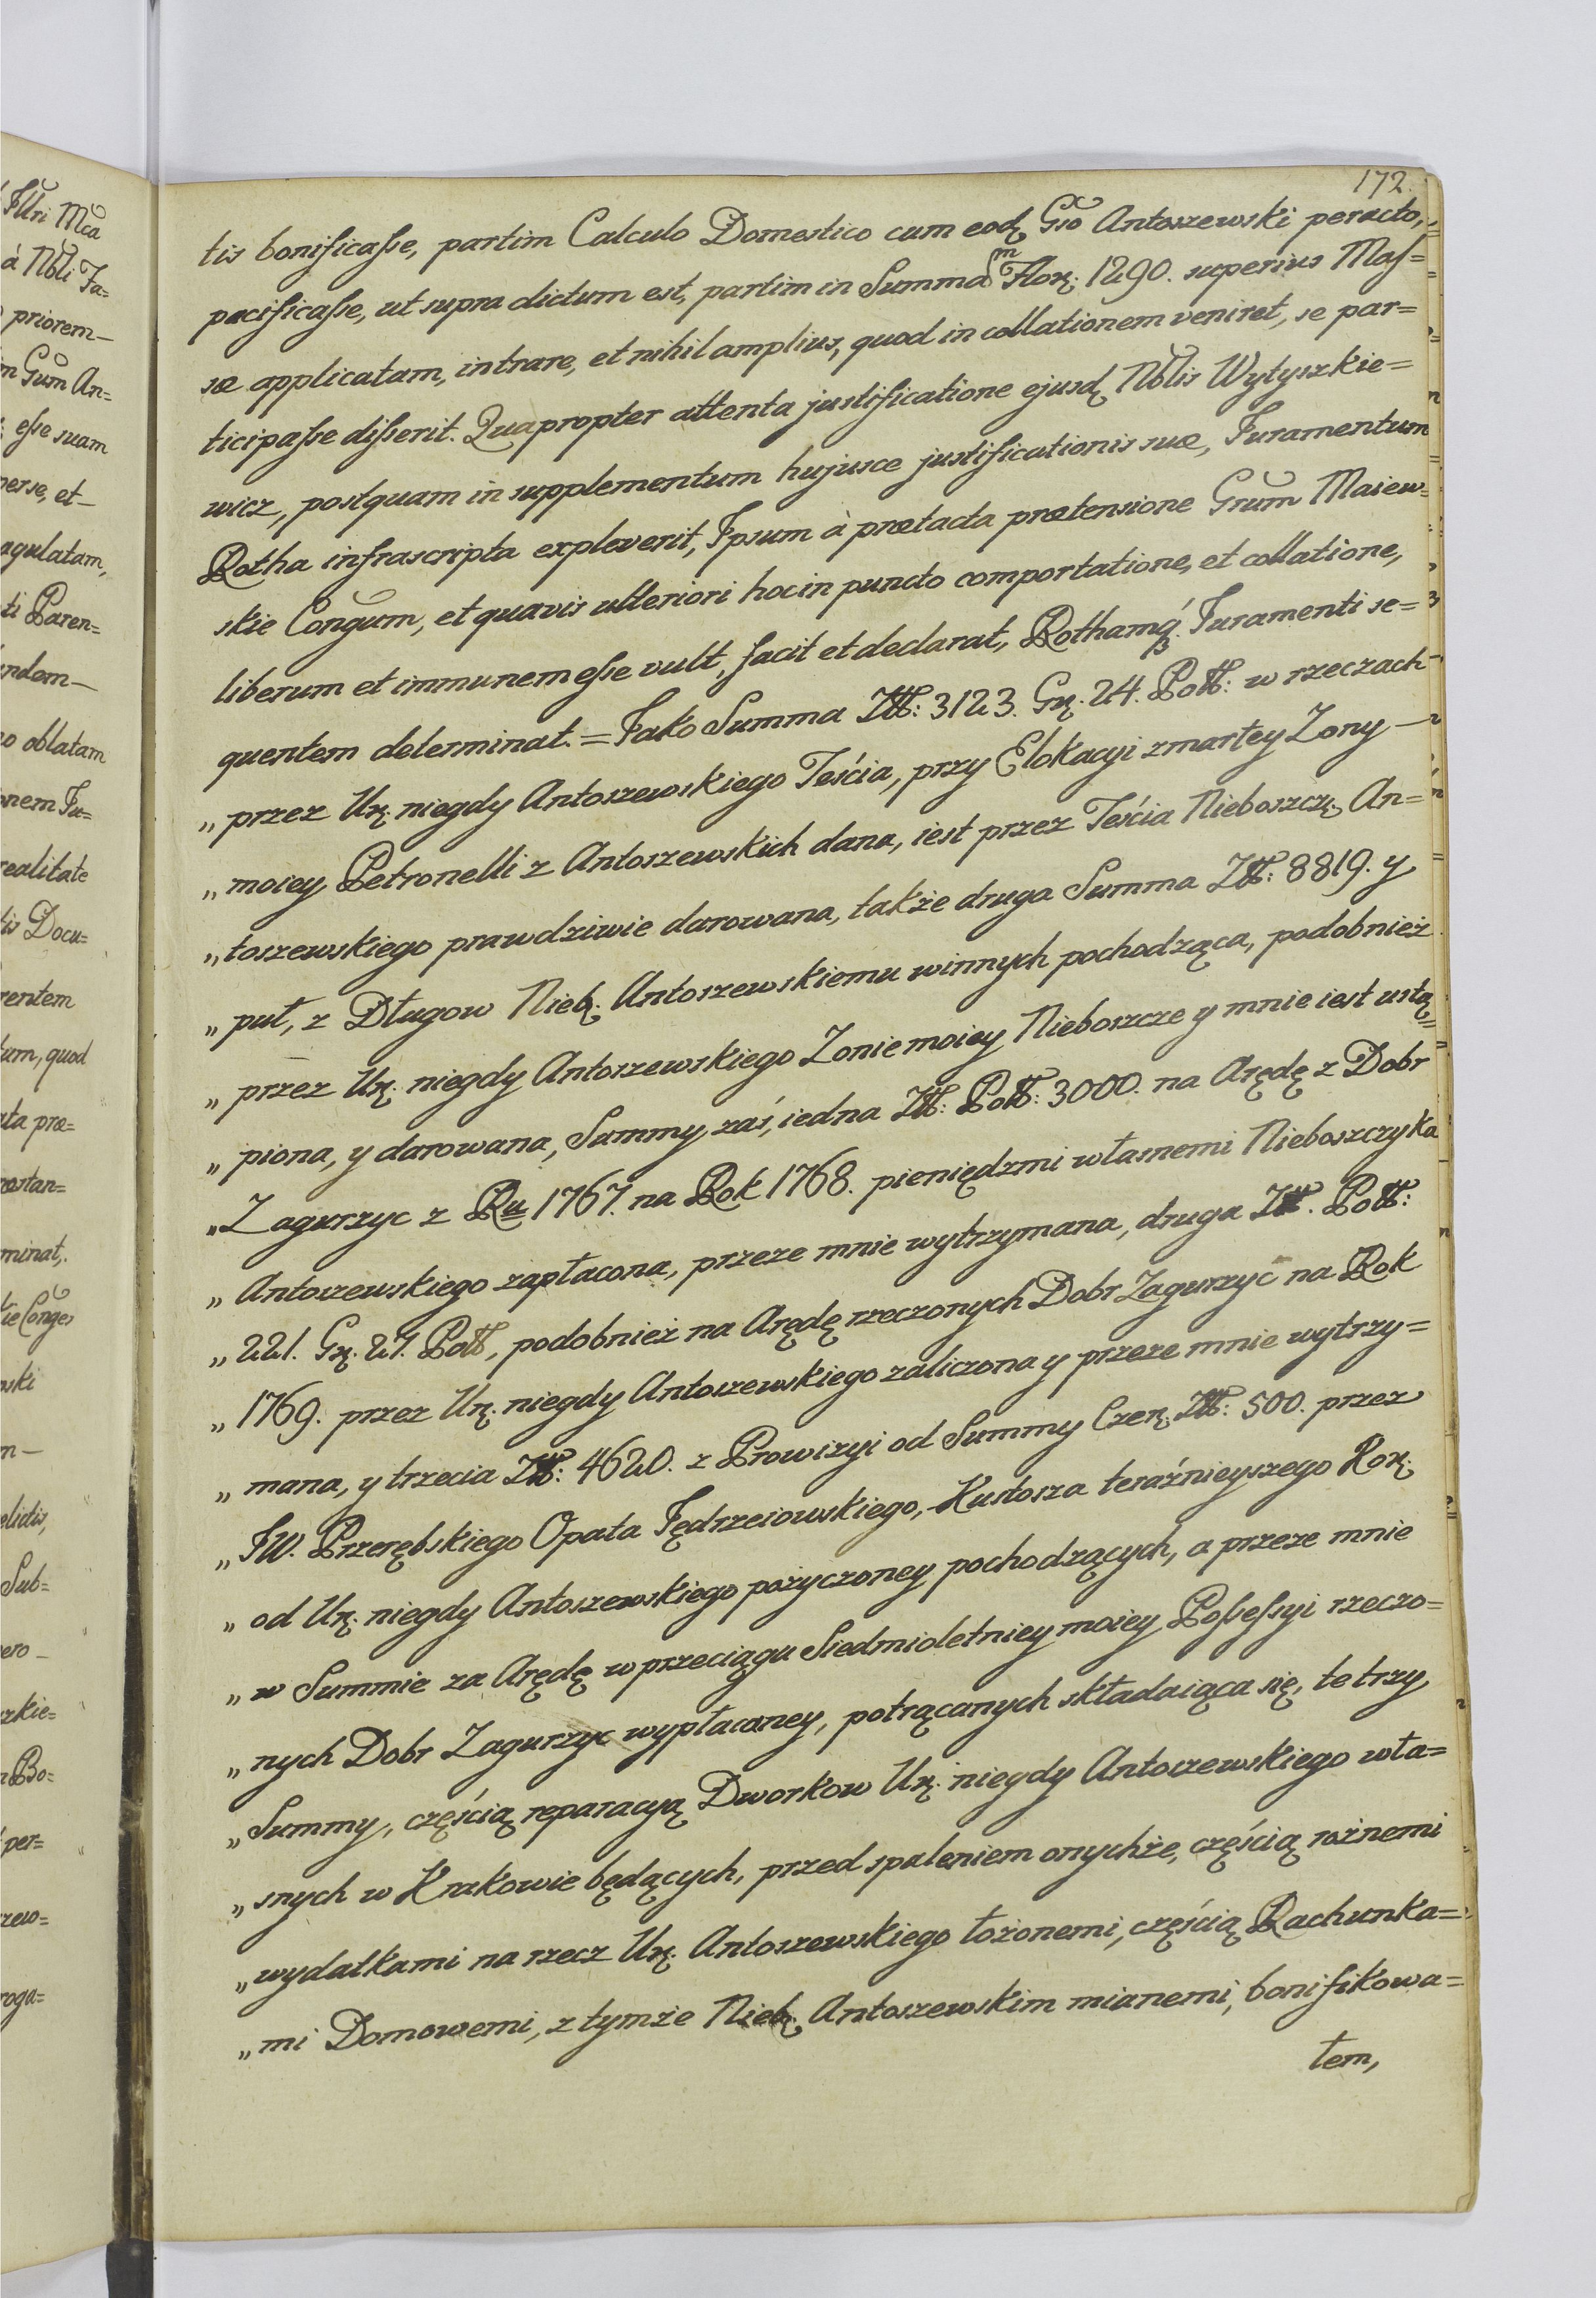 172.
tis bonificaſse, partim Calculo Domestico cum eodꝫ Gso Antoszewski peracto,
pacificaſse, ut supra dictum est, partim in Summam Florꝫ: 1290. superius Maſ=
sæ applicatam, intrare, et nihil amplius, quod in collationem veniret, se par=
ticipaſse diſserit. Quapropter attenta justificatione ejusdꝫ Nblis Wytyszkie=
wicz, postquam in supplementum hujusce justificationis suæ, Juramentum
Rotha infrascripta expleverit, Ipsum à prætacta prætensione Grum Maiew=
skie Congum, et quavis ulteriori hocin puncto comportatione, et collatione,
liberum et immunem eſse vult, facit et declarat, Rothamq́ꝫ. Juramenti se=
quentem determinat. = Jako Summa Złł: 3123. Grꝫ. 24. Poll: w rzeczach
„ przez Urꝫ. niegdy Antoszewskiego Teścia, przy Elokacyi zmarłey Zony —
„ moiey Petronelli z Antoszewskich dana, iest przez Teścia Nieboszczꝫ. An=
„ toszewskiego prawdziwie darowana, także druga Summa Złł: 8819. y
„ puł, z Długow Niebꝫ. Antoszewskiemu winnych pochodząca, podobnież
„ przez Urꝫ. niegdy Antoszewskiego Zonie moiey Nieboszcze y mnie iest ustą=
„ piona, y darowana, Summy zaś, iedna Złł: Poll: 3000. na Arędę z Dobr
„ Zagurzyc z Ru 1767. na Rok 1768. pieniędzmi własnemi Nieboszczyka
„ Antoszewskiego zapłacona, przeze mnie wytrzymana, druga Złł. Poll:
„ 221. Grꝫ. 27. Poll, podobnież na Arędę rzeczonych Dobr Zagurzyc na Rok
„ 1769. przez Urꝫ. niegdy Antoszewskiego zaliczona y przeze mnie wytrzy=
„ mana, y trzecia Złł: 4620. z Prowizyi od Summy Czerꝫ. Złł: 500. przez
„ JW. Przerębskiego Opata Jędrzeiowskiego, Kustosza teraźnieyszego Korꝫ.
„ od Urꝫ. niegdy Antoszewskiego pożyczoney pochodzących, a przeze mnie
„ w Summie za Arędę w przeciągu Siedmioletniey moiey Poſseſsyi rzeczo=
„ nych Dobr Zagurzyc wypłaconey, potrącanych składaiąca się, te trzy
„ Summy, częścią reparacyą Dworkow Urꝫ. niegdy Antoszewskiego wła=
„ snych w Krakowie będących, przed spaleniem onychże, częścią rożnemi
„ wydatkami na rzecz Urꝫ. Antoszewskiego łożonemi, częścią Rachunka=
„ mi Domowemi, z tymże Niebꝫ. Antoszewskim mianemi, bonifikowa=
łem,